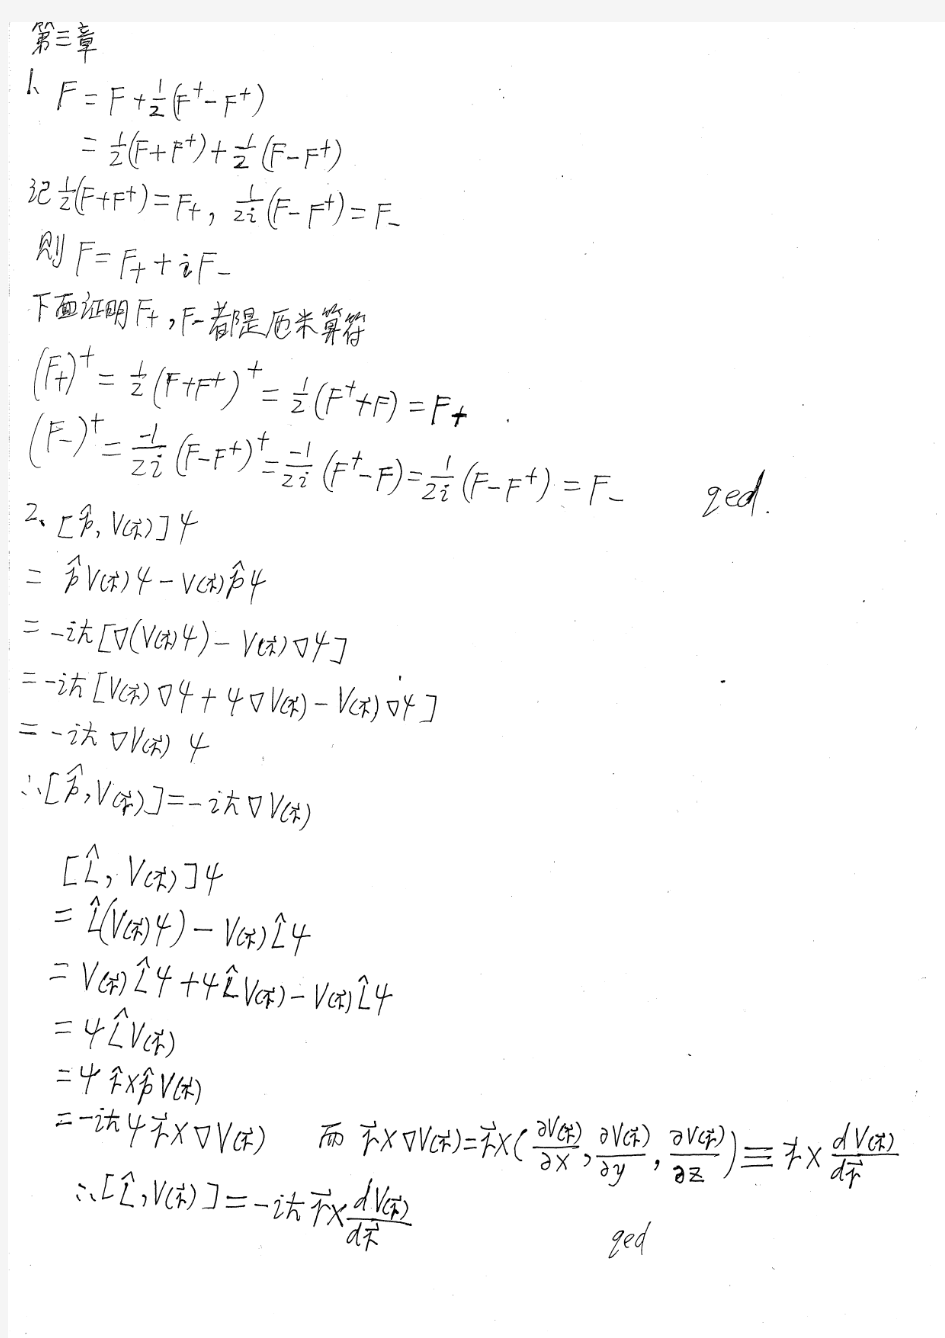 第三章
1、F = F + ½(F⁺ - F⁺)
= ½(F + F⁺) + ½(F - F⁺)
记 ½(F + F⁺) = F₊, 1/2i (F - F⁺) = F₋
则 F = F₊ + iF₋
下面证明F₊, F₋都是厄米算符
(F₊)⁺ = ½(F + F⁺)⁺ = ½(F⁺ + F) = F₊
(F₋)⁺ = -1/2i (F - F⁺)⁺ = -1/2i (F⁺ - F) = 1/2i (F - F⁺) = F₋ qed.
2、[p̂, V(r⃗)]ψ
= p̂V(r⃗)ψ - V(r⃗)p̂ψ
= -iħ[∇(V(r⃗)ψ) - V(r⃗)∇ψ]
= -iħ[V(r⃗)∇ψ + ψ∇V(r⃗) - V(r⃗)∇ψ]
= -iħ∇V(r⃗)ψ
∴[p̂, V(r⃗)] = -iħ∇V(r⃗)
[L̂, V(r⃗)]ψ
= L̂(V(r⃗)ψ) - V(r⃗)L̂ψ
= V(r⃗)L̂ψ + ψL̂V(r⃗) - V(r⃗)L̂ψ
= ψL̂V(r⃗)
= ψ r̂×p̂V(r⃗)
= -iħψr⃗×∇V(r⃗) 而 r⃗×∇V(r⃗) = r⃗×(∂V(r⃗)/∂x, ∂V(r⃗)/∂y, ∂V(r⃗)/∂z) ≡ r⃗×dV(r⃗)/dr⃗
∴[L̂, V(r⃗)] = -iħr⃗×dV(r⃗)/dr⃗ qed